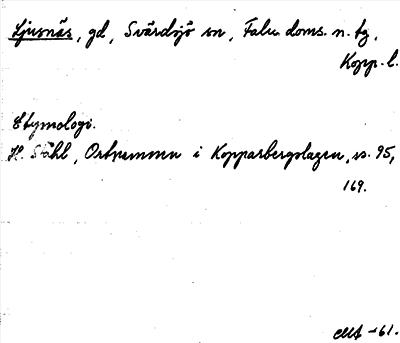 Ljusnäs, gd, Svärdsjö sn, Falu doms. n. tg,
Kopp. l.
Etymologi.
H. Ståhl, Ortnamnen i Kopparbergslagen, s. 95,
169.
-61.